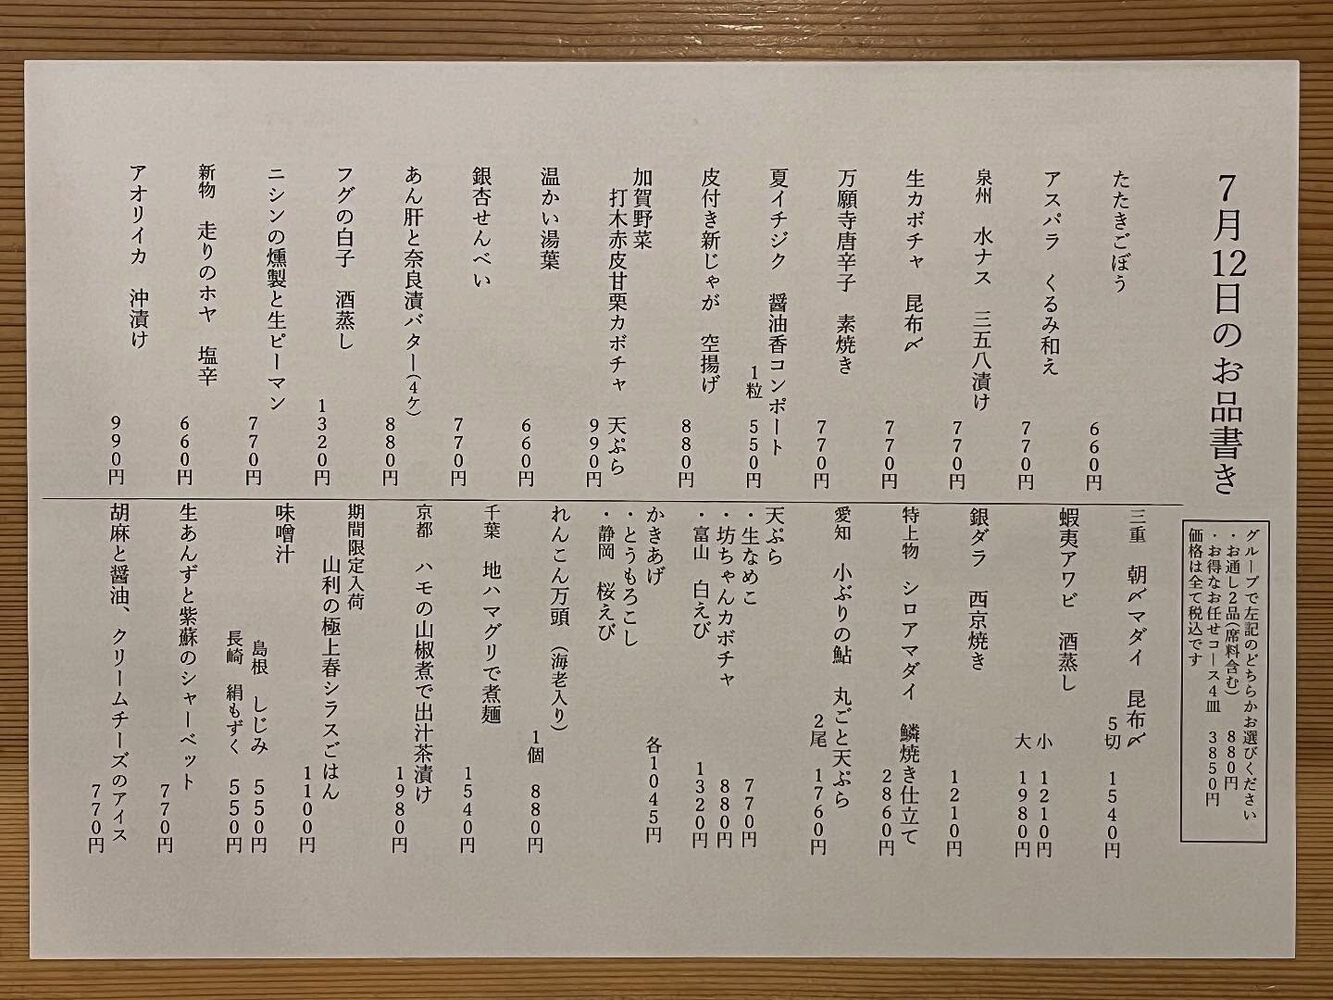 7月12日のお品書き
グループで左記のどちらかお選びください
・お通し2品(席料含む) 880円
・お得なお任せコース4皿 3850円
価格は全て税込です
たたきごぼう 660円
アスパラ くるみ和え 770円
泉州 水ナス 三五八漬け 770円
生カボチャ 昆布〆 770円
万願寺唐辛子 素焼き 770円
夏イチジク 醤油香コンポート
1粒 550円
皮付き新じゃが 空揚げ 880円
加賀野菜
打木赤皮甘栗カボチャ 天ぷら
990円
温かい湯葉 660円
銀杏せんべい 770円
あん肝と奈良漬バター(4ケ) 880円
フグの白子 酒蒸し 1320円
ニシンの燻製と生ピーマン 770円
新物 走りのホヤ 塩辛 660円
アオリイカ 沖漬け 990円
三重 朝〆マダイ 昆布〆
5切 1540円
蝦夷アワビ 酒蒸し
小 1210円
大 1980円
銀ダラ 西京焼き 1210円
特上物 シロアマダイ 鱗焼き仕立て
2860円
愛知 小ぶりの鮎 丸ごと天ぷら
2尾 1760円
天ぷら
・生なめこ 770円
・坊ちゃんカボチャ 880円
・富山 白えび 1320円
かきあげ 各1045円
・とうもろこし
・静岡 桜えび
れんこん万頭 (海老入り)
1個 880円
千葉 地ハマグリで煮麺 1540円
京都 ハモの山椒煮で出汁茶漬け
1980円
期間限定入荷
山利の極上春シラスごはん
1100円
味噌汁
島根 しじみ 550円
長崎 絹もずく 550円
生あんずと紫蘇のシャーベット
770円
胡麻と醤油、クリームチーズのアイス
770円